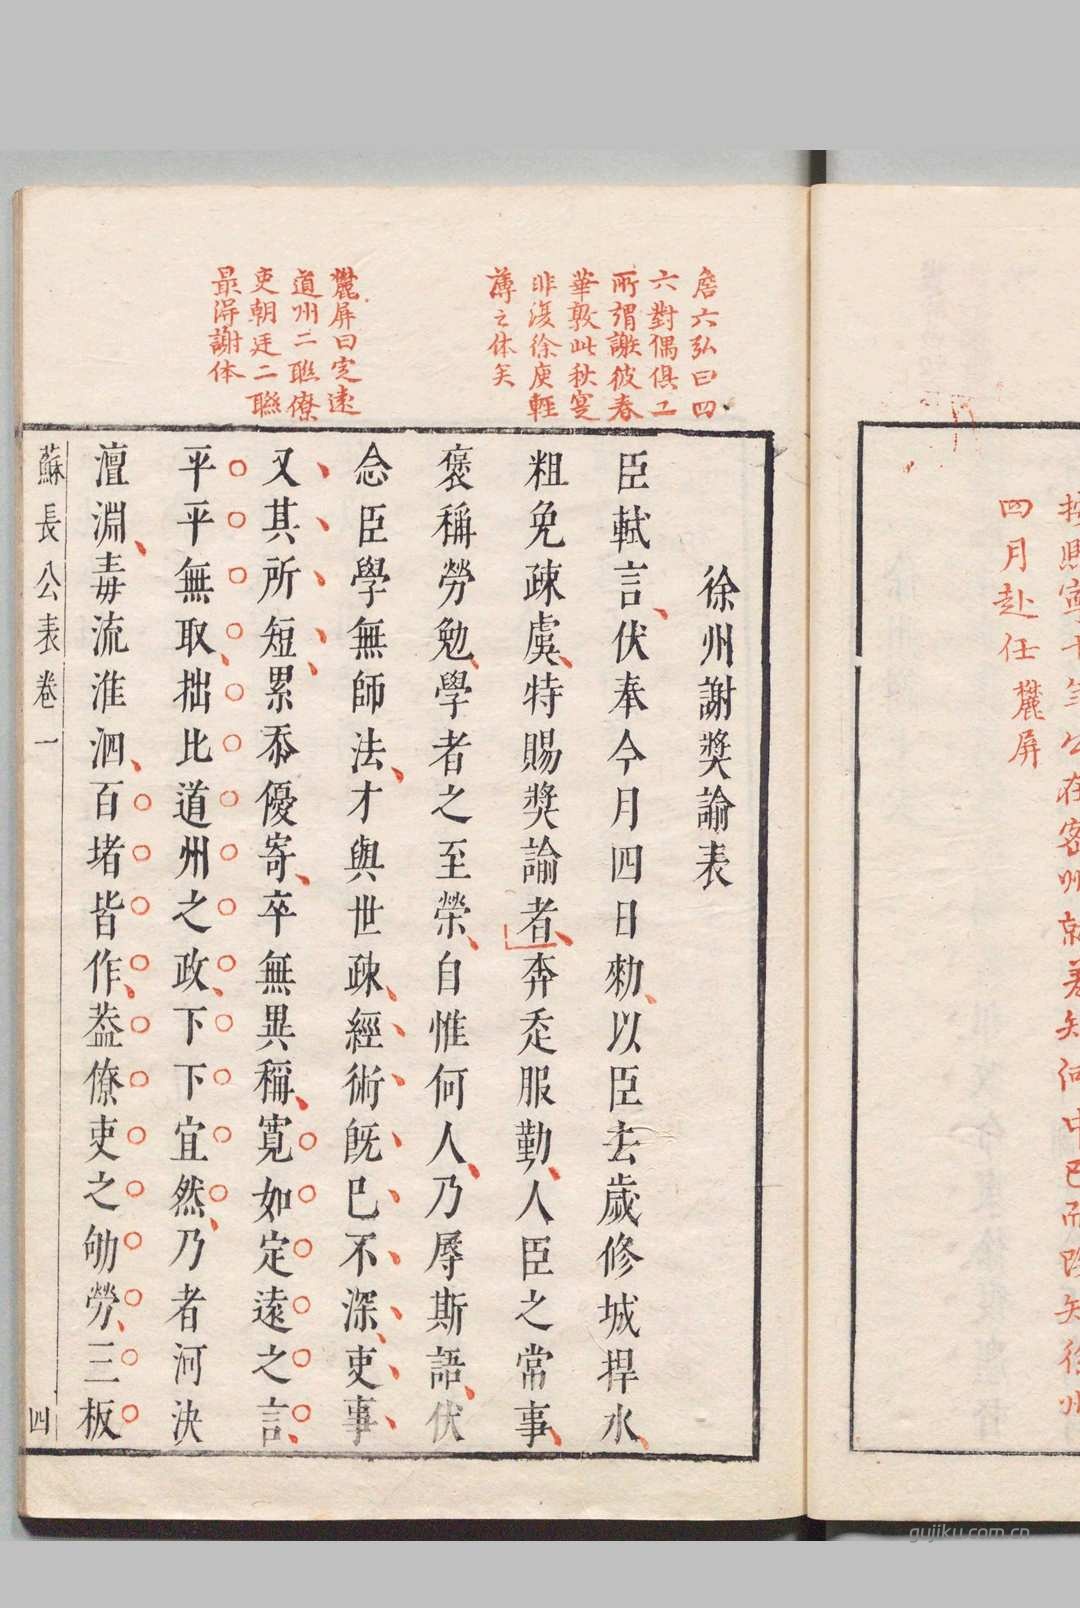 四月赴任麓屏
詹六弘曰四
六對偶俱工
所謂謝彼春
華敦此秋寔
非復徐庾輕
薄之体矣
麓屏曰定遠
道州二聮僚
吏朝廷二聯
最得謝体
徐州謝奬諭表
臣軾言伏奉今月四日勑以臣去歲修城捍水
粗免疎虞特賜奬諭者奔走服勤人臣之常事
褒稱勞勉學者之至榮自惟何人乃辱斯語伏
念臣學無師法才與世疎經術旣巳不深吏事
又其所短累忝優寄卒無異稱寛如定遠之言
平平無取拙比道州之政下下宜然乃者河決
澶淵毒流淮泗百堵皆作葢僚吏之劬勞三板
蘇長公表卷一
四
gujiku.com.cn